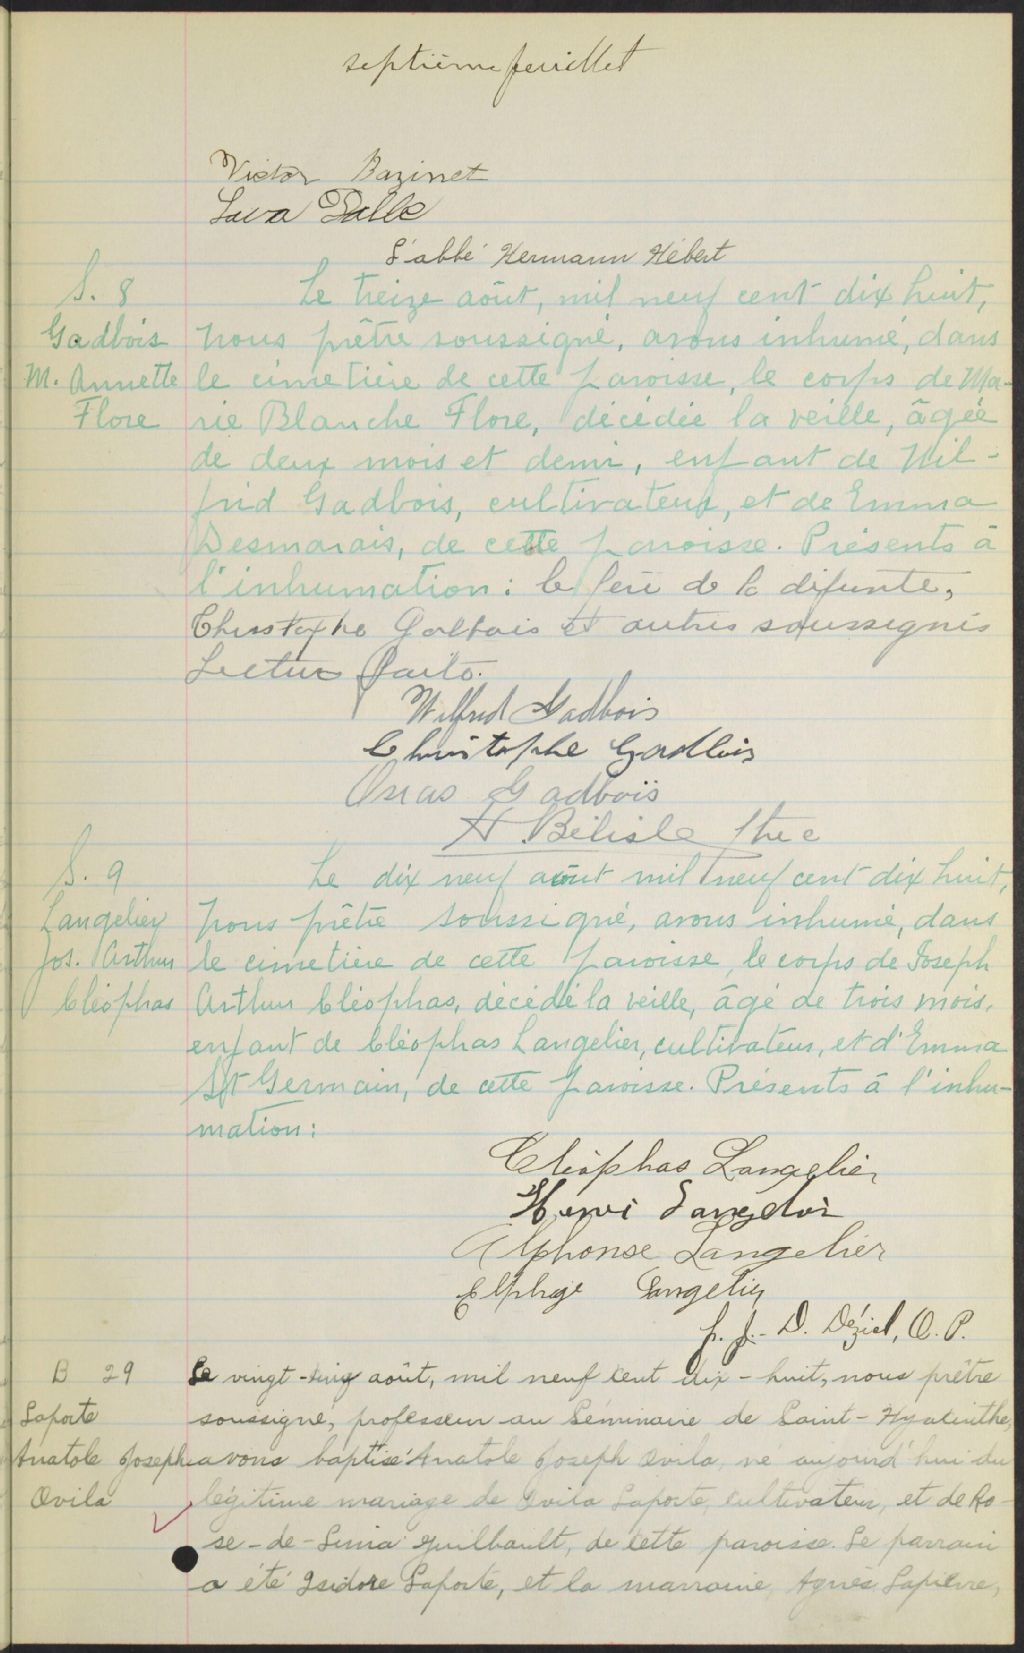 septième feuillet
Victor Bazinet
L'abbé Hermann Hébert
S. 8
Gadbois
M. Annette
Flore
Le treize août, mil neuf cent dix huit,
nous prêtre soussigné, avons inhumé, dans
le cimetière de cette paroisse, le corps de Ma-
rie Blanche Flore, décédée la veille, âgée
de deux mois et demi, enfant de Wil-
frid Gadbois, cultivateur, et de Emma
Desmarais, de cette paroisse. Présents à
l'inhumation: le père de la défunte,
Christophe Gadbois et autres soussignés
Lecture faite.
Wilfrid Gadbois
Christophe Gadbois
Gadbois
H. Bélisle ptre
S. 9
Langelier
Jos. Arthur
Cléophas
Le dix neuf août mil neuf cent dix huit,
nous prêtre soussigné, avons inhumé, dans
le cimetière de cette paroisse, le corps de Joseph
Arthur Cléophas, décédé la veille, âgé de trois mois,
enfant de Cléophas Langelier, cultivateur, et d'Emma
St Germain, de cette paroisse. Présents à l'inhu-
mation:
Cléophas Langelier
Henri Langelier
Alphonse Langelier
Elphège Langelier
fr. J.-D. Déziel, O. P.
B 29
Laporte
Anatole Joseph
Ovila
Le vingt-cinq août, mil neuf cent dix-huit, nous prêtre
soussigné, professeur au Séminaire de Saint-Hyacinthe,
avons baptisé Anatole Joseph Ovila, né aujourd'hui du
légitime mariage de Ovila Laporte, cultivateur, et de Ro-
se-de-Lima Guilbault, de cette paroisse. Le parrain
a été Isidore Laporte, et la marraine, Agnès Lapierre,